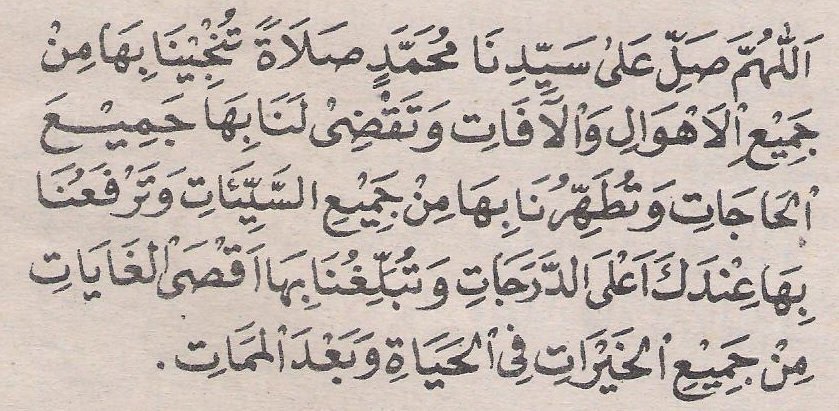 اَللّٰهُمَّ صَلِّ عَلىٰ سَيِّدِنَا مُحَمَّدٍ صَلَاةً تُنْجِيْنَا بِهَا مِنْ
جَمِيْعِ اْلاَهْوَالِ وَاْلآفَاتِ وَتَقْضِىْ لَنَا بِهَا جَمِيْعَ
اْلحَاجَاتِ وَتُطَهِّرُنَا بِهَا مِنْ جَمِيْعِ السَّيِّئَاتِ وَتَرْفَعُنَا
بِهَا عِنْدَكَ اَعْلَى الدَّرَجَاتِ وَتُبَلِّغُنَا بِهَا اَقْصَى اْلغَايَاتِ
مِنْ جَمِيْعِ اْلخَيْرَاتِ فِى اْلحَيَاةِ وَبَعْدَ اْلمَمَاتِ.